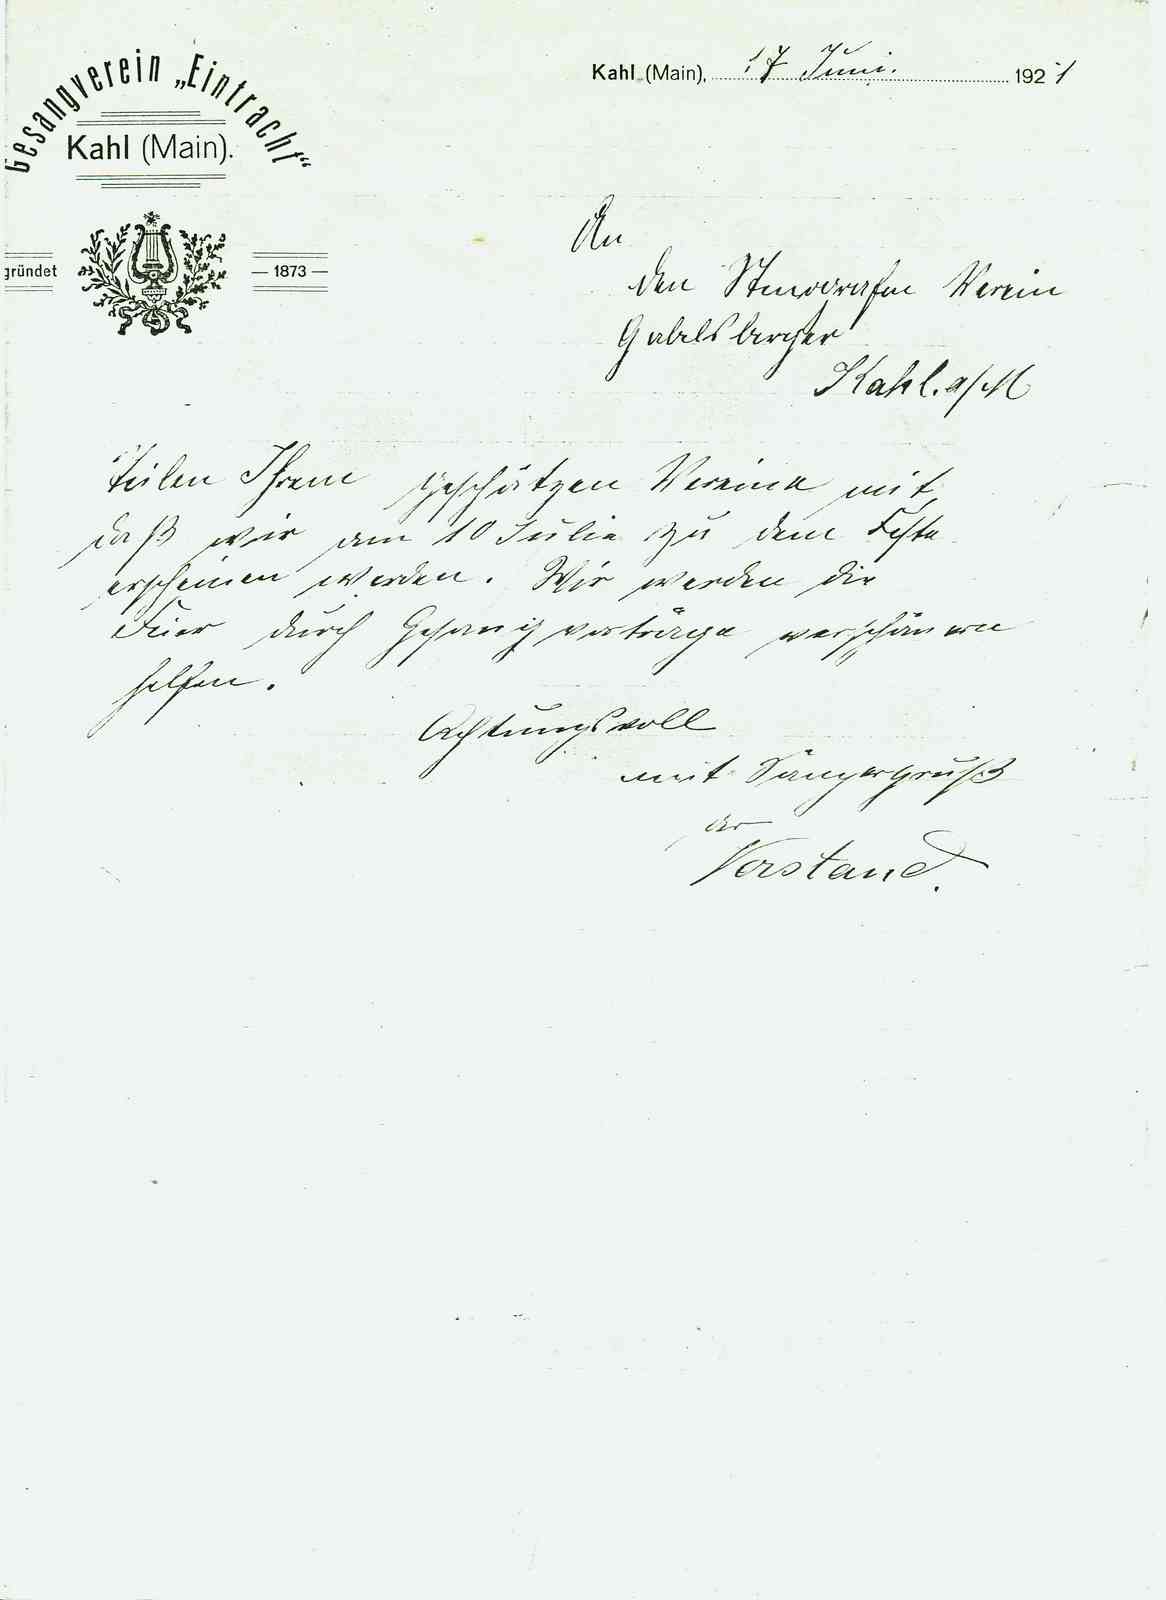 Gesangverein „Eintracht“
Kahl (Main).
gründet — 1873 —
Kahl (Main), 17 Juni. 1921
An
den Stenografen Verein
Gabelsberger
Kahl. a/M
Teilen Ihrem geschätzen Vereine mit,
daß wir am 10 Julie zu dem Feste
erscheinen werden. Wir werden die
Feier durch Gesangsvorträge verschönern
helfen.
Achtungsvoll
mit Sängergruß
der
Vorstand.